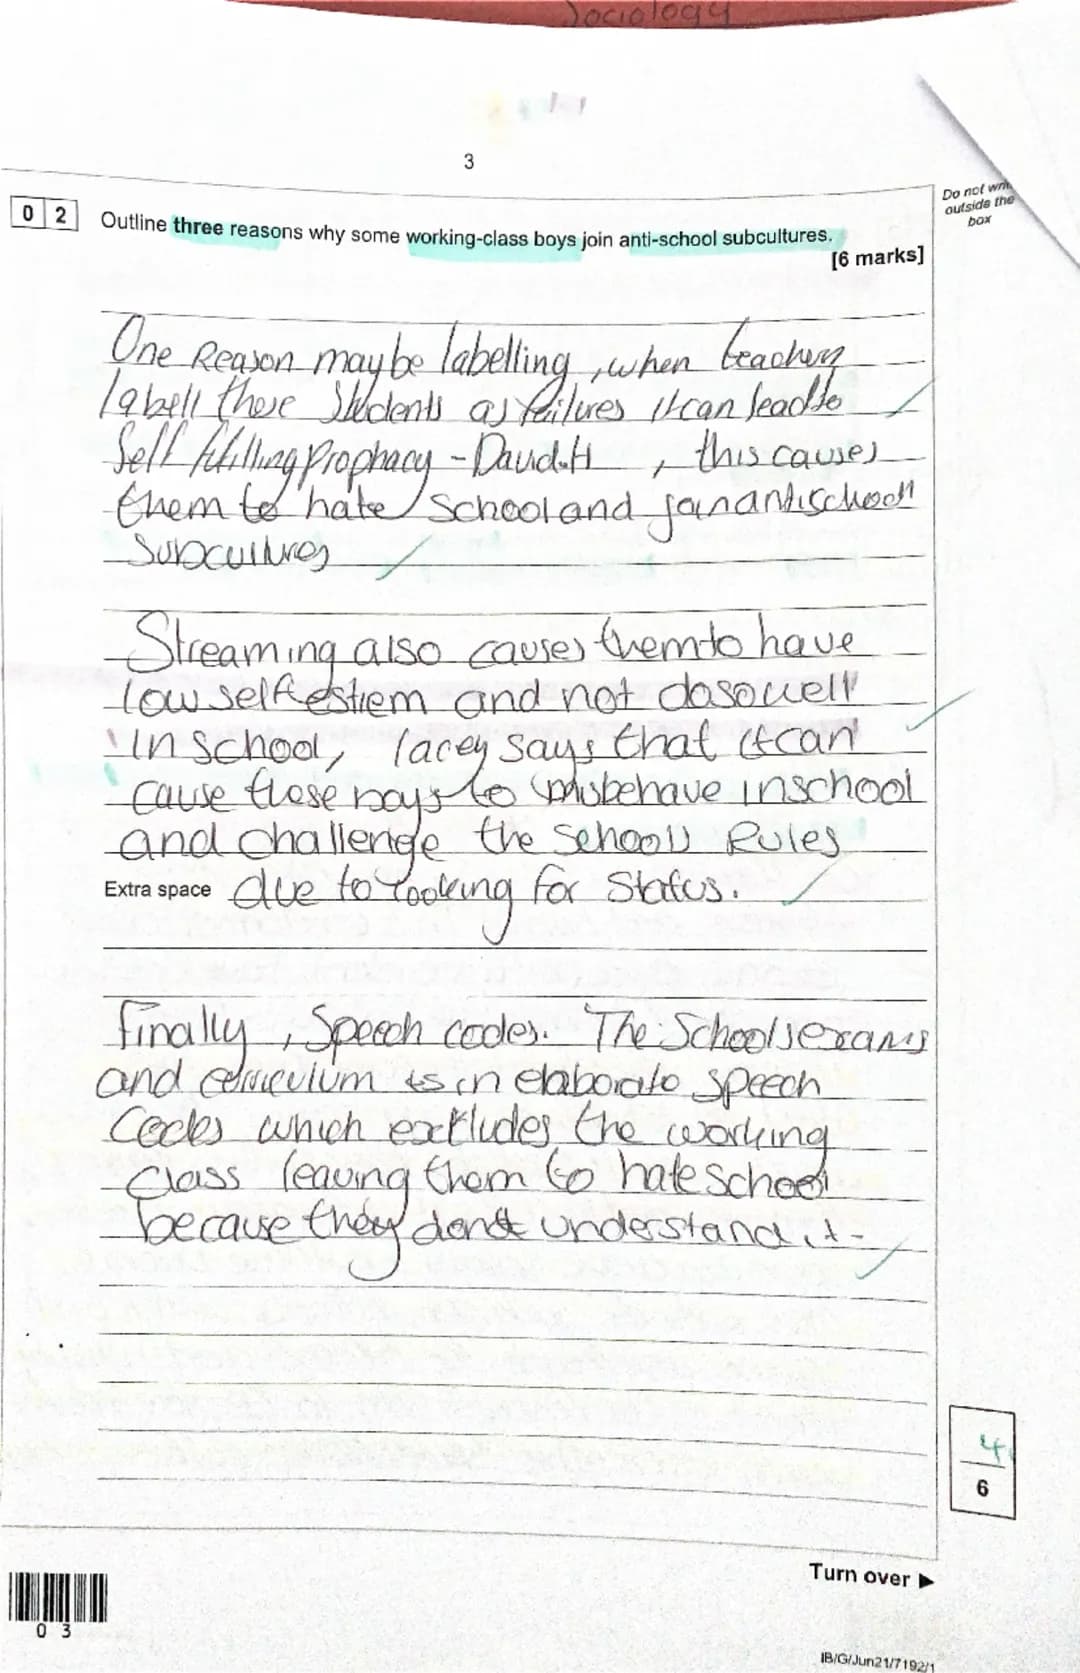 Sociology
3
Do not
outside the
box
0 2 Outline three reasons why some working-class boys join anti-school subcultures.
[6 marks]
One Reason may be labelling, when teachers
labell these Students as failures it can lead to
Self fulfilling Prophacy - David.H , this causes
them to hate School and join antischool
Subcultures
Streaming also causes them to have
low self estiem and not do so well
in school, lacey says that it can
cause these boys to misbehave in school
and challenge the schools Rules
Extra space due to looking for Status.
Finally, Speech codes. The Schools exams
and curriculum is in elaborate speech
Codes which exkludes the working
class leaving them to hate school
because they dont understand it.
4
6
Turn over ►
0 3
IB/G/Jun21/7192/1